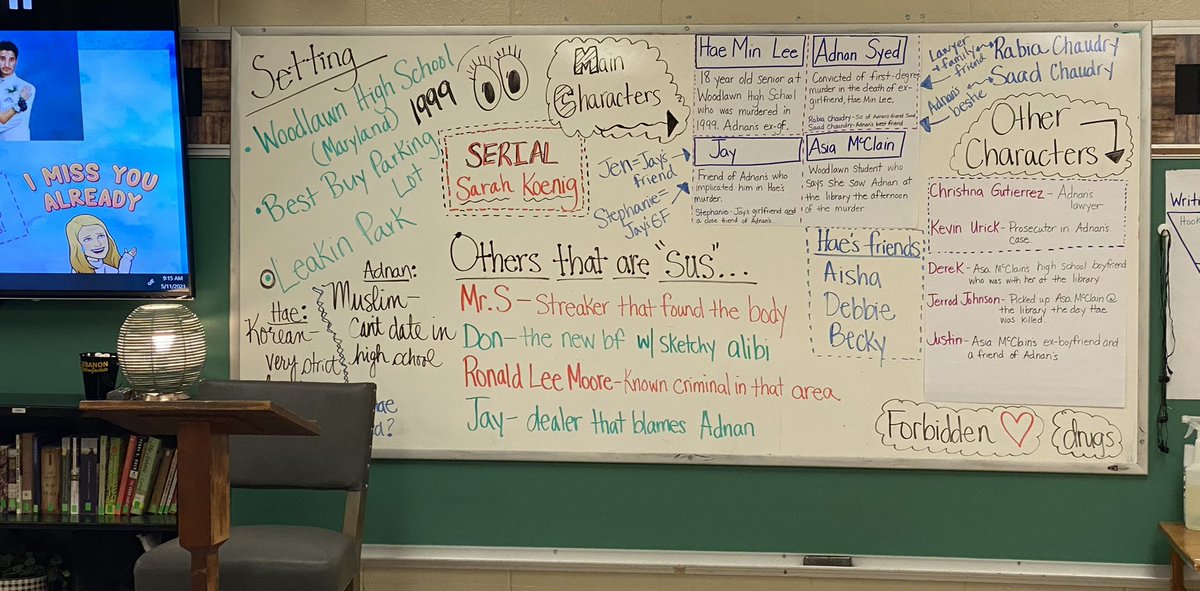 I MISS YOU
ALREADY
9:15 AM
5/11/2021
Setting
• Woodlawn High School
(Maryland)
1999
• Best Buy Parking
Lot
Leakin Park
Hae:
Korean-
very strict
Adnan:
Muslim-
Cant date in
high school
Main
Characters
SERIAL
Sarah Koenig
Jen=Jays
friend
Stephanie=
Jays GF
Hae Min Lee
18 year old senior at
Woodlawn High School
who was murdered in
1999. Adnans ex-gf.
Adnan Syed
Convicted of first-degree
murder in the death of ex-
girlfriend, Hae Min Lee.
Rabia Chaudry- Sis of Adnan's friend Saad
Saad Chaudry- Adnan's best friend
Jay
Friend of Adnans who
implicated him in Hae's
murder.
Stephanie- Jays girlfriend and
a close friend of Adnan's.
Asia McClain
Woodlawn Student who
says She saw Adnan at
the library the afternoon
of the murder.
Lawyer
+ family
friend
Rabia Chaudry
Adnans
bestie
Saad Chaudry
Other
Characters
Christina Gutierrez- Adnans
lawyer
Kevin Urick- Prosecutor in Adnans
Case.
Derek- Asa McClains high school boyfriend
who was with her at the library
Jerrod Johnson- Picked up Asa McClain @
the library the day Hae
was killed.
Justin- Asia McClains ex-boyfriend and
a friend of Adnan's
Others that are "sus"...
Mr.S - Streaker that found the body
Don- the new bf w/ sketchy alibi
Ronald Lee Moore-Known criminal in that area
Jay- dealer that blames Adnan
Hae's friends
Aisha
Debbie
Becky
Forbidden
drugs